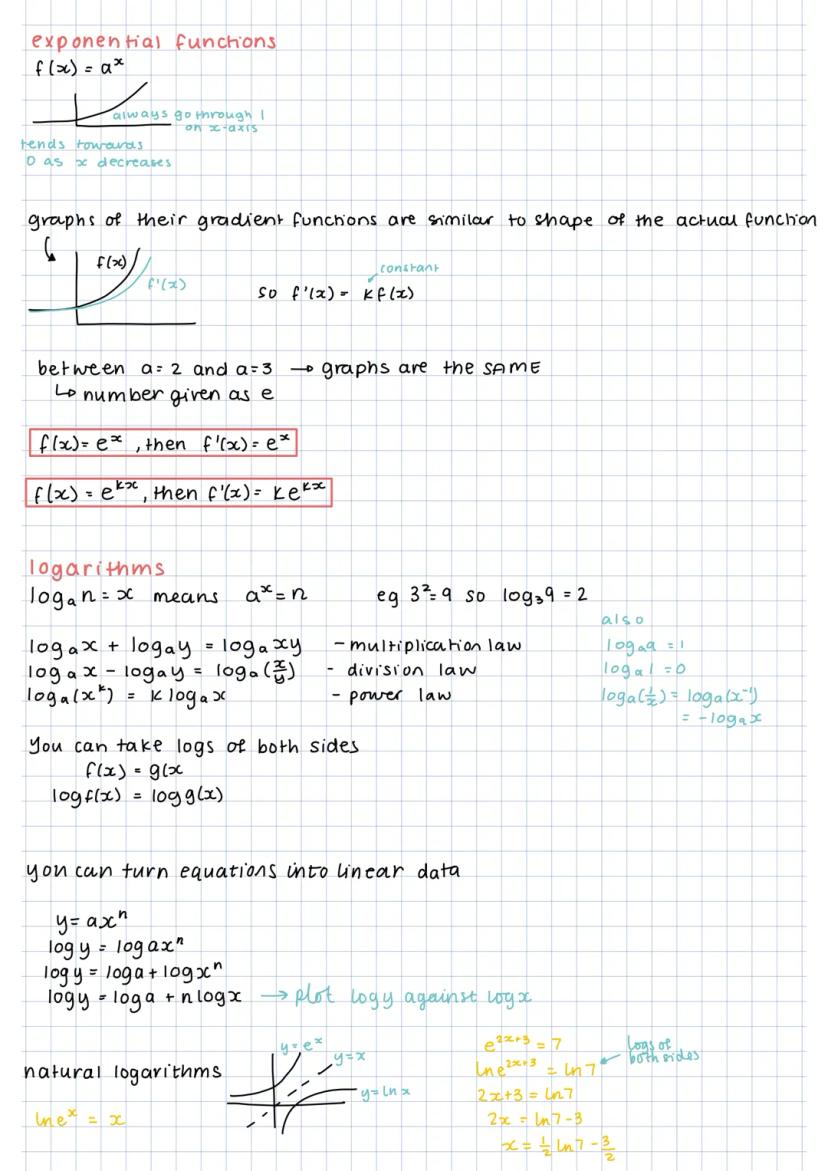 exponential functions
f(x) = aˣ
always go through 1
on x-axis
tends towards
0 as x decreases
graphs of their gradient functions are similar to shape of the actual function
f(x)
f'(x)
constant
so f'(x) = kf(x)
between a = 2 and a = 3 → graphs are the SAME
↳ number given as e
f(x) = eˣ, then f'(x) = eˣ
f(x) = eᵏˣ, then f'(x) = keᵏˣ
logarithms
logₐn = x means aˣ = n eg 3² = 9 so log₃9 = 2
logₐx + logₐy = logₐxy - multiplication law
logₐx - logₐy = logₐ(x/y) - division law
logₐ(xᵏ) = k logₐx - power law
also
logₐa = 1
logₐ1 = 0
logₐ(1/x) = logₐ(x⁻¹)
= -logₐx
You can take logs of both sides
f(x) = g(x
logf(x) = logg(x)
you can turn equations into linear data
y = axⁿ
logy = logaxⁿ
logy = loga + logxⁿ
logy = loga + nlogx → plot logy against logx
natural logarithms
lneˣ = x
y = eˣ
y = x
y = ln x
e²ˣ⁺³ = 7
lne²ˣ⁺³ = ln7
logs of
both sides
2x+3 = ln7
2x = ln7 - 3
x = 1/2 ln7 - 3/2